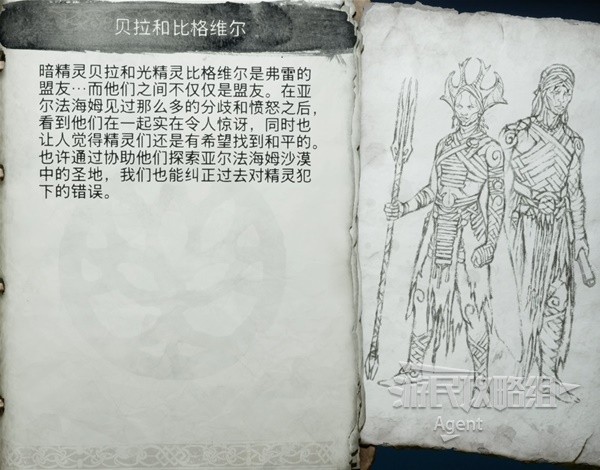 贝拉和比格维尔
暗精灵贝拉和光精灵比格维尔是弗雷的
盟友…而他们之间不仅仅是盟友。在亚
尔法海姆见过那么多的分歧和愤怒之后，
看到他们在一起实在令人惊讶，同时也
让人觉得精灵们还是有希望找到和平的。
也许通过协助他们探索亚尔法海姆沙漠
中的圣地，我们也能纠正过去对精灵犯
下的错误。
游民攻略组
Agent